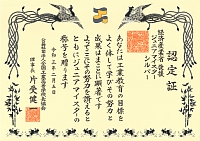 認定証
経済産業省 後援
ジュニアマイスター
シルバー
あなたは工業教育の目標を
よく体して学びその努力と
成果はまことに顕著です
よってここにその努力を讃えると
ともにジュニアマイスターの
称号を贈ります
令和三年二月五日
公益社団法人全国工業高等学校長協会
理事長